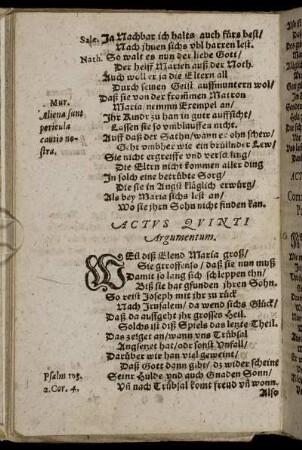 Sale. Ja Nachbar ich halts auch fürs best/
Nach jhnen sichs vbl harren lest.
Nath. So walt es nun der liebe Gott/
Der helff Marien auß der Noth.
Auch woll er ja die Eltern all
Durch seinen Geist auffmuntern wol/
Daß sie von der frommen Matron
Maria nemmn Exempel an/
Ihr Kindr zu han in gutr auffsicht/
Lassen sie so vmblauffen nicht.
Auff daß der Sathn/wann er ohn schew/
Geht vmbher wie ein brüllndr Lew/
Sie nicht ergreiffe vnd verschling/
Die Eltrn nicht kommen aller ding
In solch eine betrübte Sorg/
Die sie in Angst kläglich erwürg/
Als bey Maria sichs lest an/
Wo sie jhrn Sohn nicht finden kan.
Mur.
Aliena sunt
pericula
cautio no-
stra.
ACTVS QVINTI
Argumentum.
WEil diß Elend Maria groß/
Sie getroffen so/ daß sie nun muß
Damit so lang sich schleppen thn/
Biß sie hat gfunden jhren Sohn.
So reist Joseph mit jhr zu rück
Nach Jerusalem/ da wend sichs Glück/
Daß da auffgeht jhr grosses Heil.
Solchs ist diß Spiels das letzte Theil.
Das zeiget an/wann vns Trübsal
Angsetzet hat/odr sonst Vnfall/
Darüber wir han viel geweint/
Daß Gott dann gibt/ dz wider scheint
Seine Hulde vnd auch Gnaden Sonn/
Vñ nach Trübsal komt freud vñ wonn.
Psalm 105.
2. Cor. 4.
Also